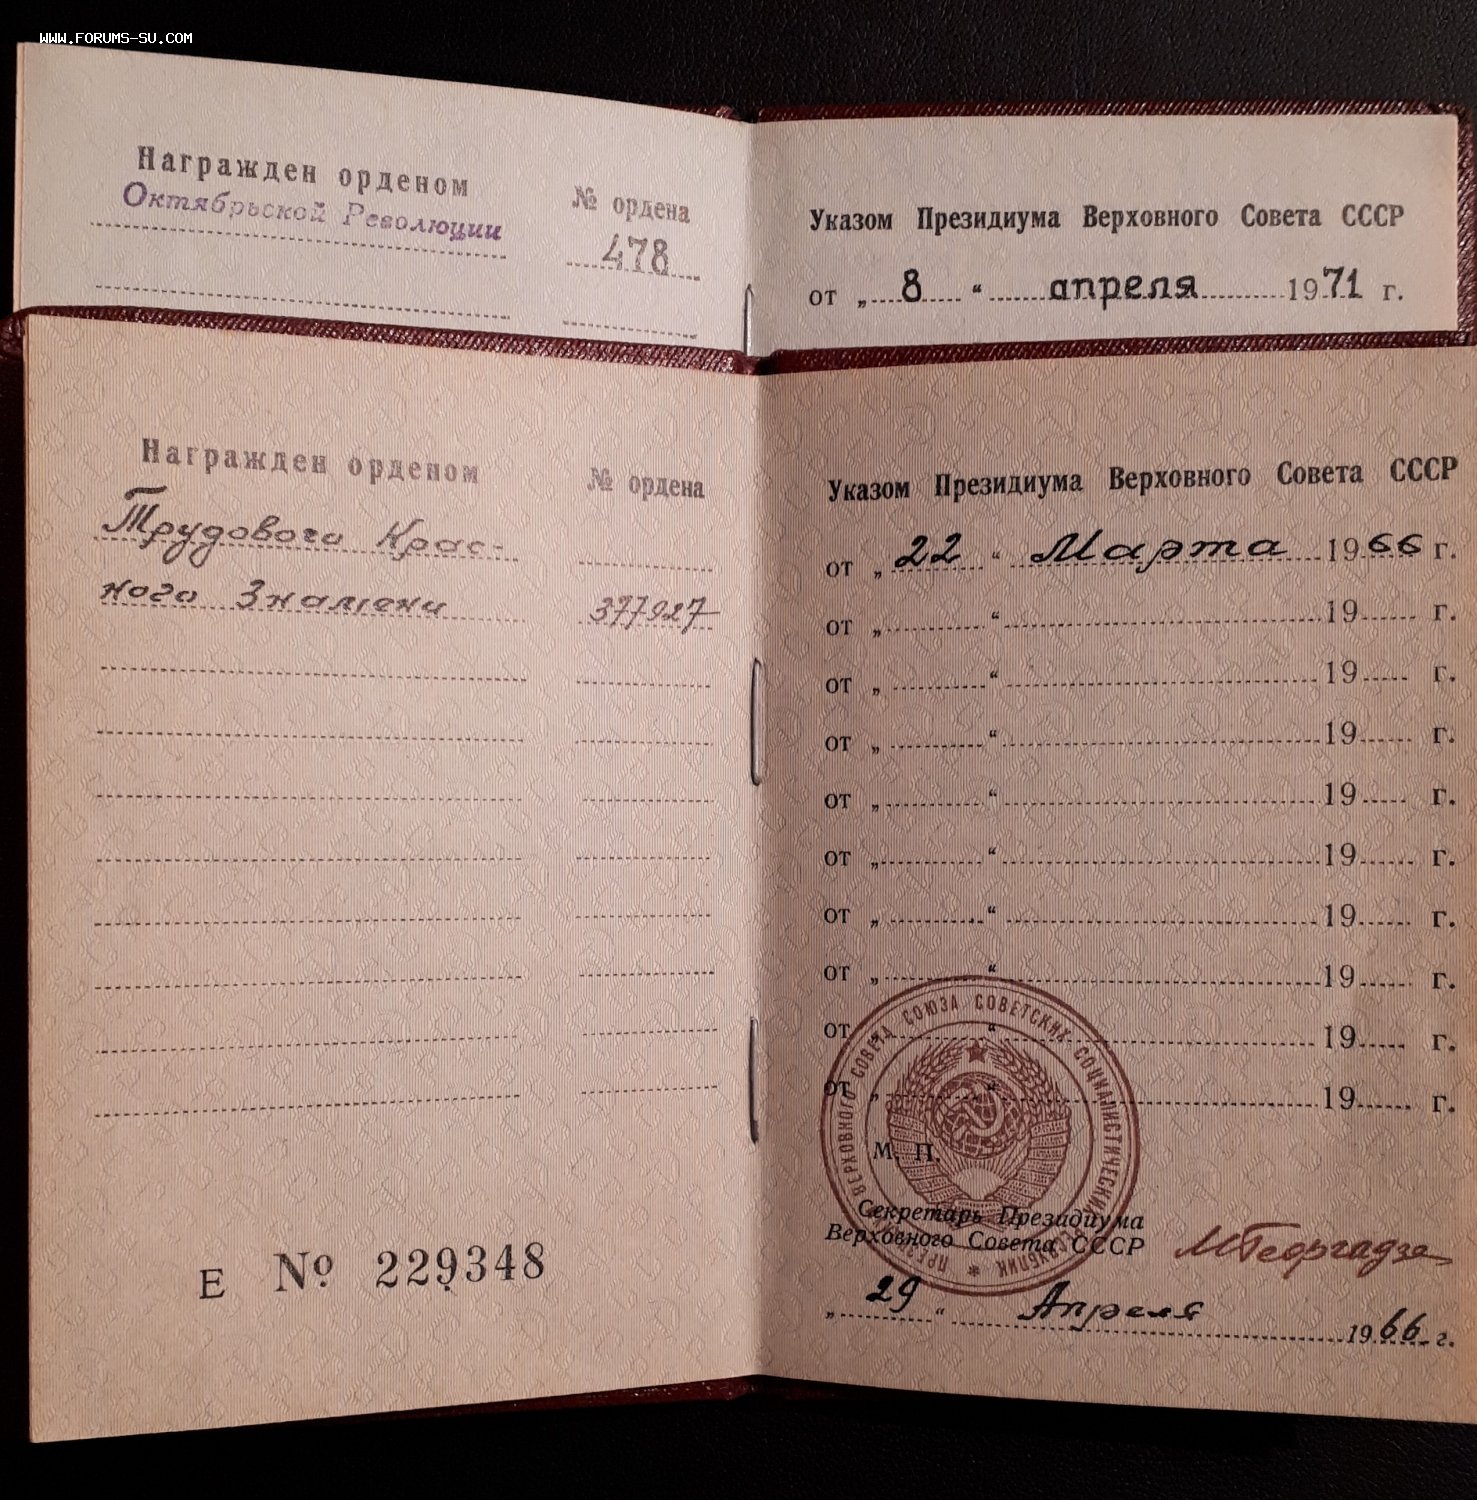 WWW.FORUMS-SU.COM
Награжден орденом № ордена
Октябрьской Революции 478
Указом Президиума Верховного Совета СССР
от „ 8 “ апреля 1971 г.
Награжден орденом № ордена
Трудового Крас-
ного Знамени 377927
Указом Президиума Верховного Совета СССР
от „ 22 “ Марта 1966 г.
от „ “ 19 г.
от „ “ 19 г.
от „ “ 19 г.
от „ “ 19 г.
от „ “ 19 г.
от „ “ 19 г.
от „ “ 19 г.
от „ “ 19 г.
от „ “ 19 г.
ПРЕЗИДИУМ ВЕРХОВНОГО СОВЕТА СОЮЗА СОВЕТСКИХ СОЦИАЛИСТИЧЕСКИХ РЕСПУБЛИК *
М. П.
Секретарь Президиума
Верховного Совета СССР МГеоргадзе
„ 29 “ Апреля 1966 г.
Е № 229348